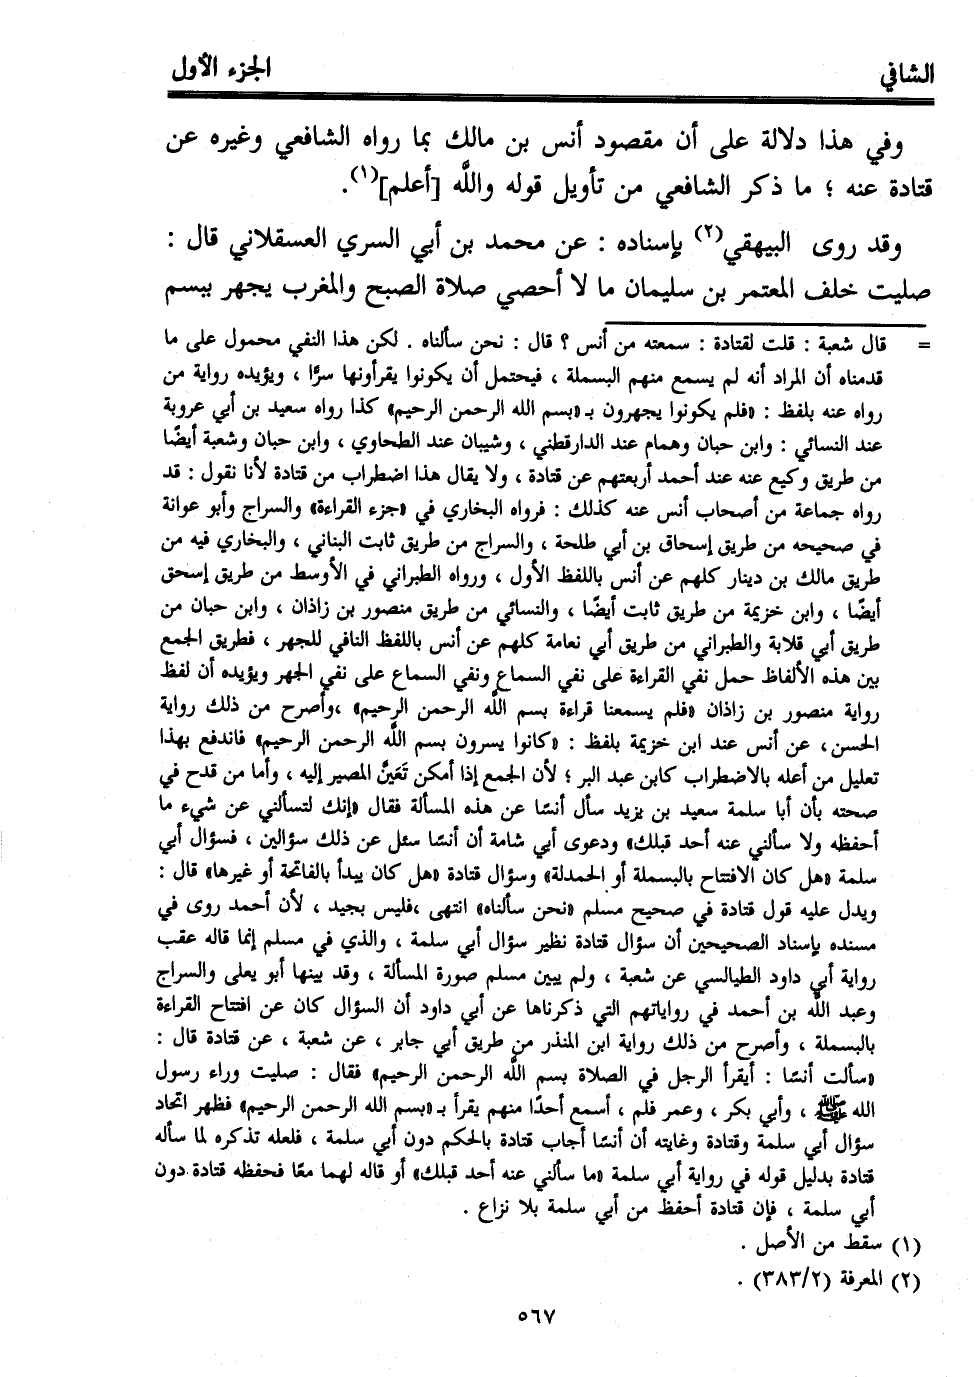 الشافي
الجزء الأول
وفي هذا دلالة على أن مقصود أنس بن مالك بما رواه الشافعي وغيره عن
قتادة عنه ؛ ما ذكر الشافعي من تأويل قوله واللَّه [أعلم](١).
وقد روى البيهقي(٢) بإسناده : عن محمد بن أبي السري العسقلاني قال :
صليت خلف المعتمر بن سليمان ما لا أحصي صلاة الصبح والمغرب يجهر ببسم
= قال شعبة : قلت لقتادة : سمعته من أنس ؟ قال : نحن سألناه . لكن هذا النفي محمول على ما
قدمناه أن المراد أنه لم يسمع منهم البسملة ، فيحتمل أن يكونوا يقرأونها سرًّا ، ويؤيده رواية من
رواه عنه بلفظ : «فلم يكونوا يجهرون بـ«بسم الله الرحمن الرحيم» كذا رواه سعيد بن أبي عروبة
عند النسائي : وابن حبان وهمام عند الدارقطني ، وشيبان عند الطحاوي ، وابن حبان وشعبة أيضًا
من طريق وكيع عنه عند أحمد أربعتهم عن قتادة ، ولا يقال هذا اضطراب من قتادة لأنا نقول : قد
رواه جماعة من أصحاب أنس عنه كذلك : فرواه البخاري في «جزء القراءة» والسراج وأبو عوانة
في صحيحه من طريق إسحاق بن أبي طلحة ، والسراج من طريق ثابت البناني ، والبخاري فيه من
طريق مالك بن دينار كلهم عن أنس باللفظ الأول ، ورواه الطبراني في الأوسط من طريق إسحق
أيضًا ، وابن خزيمة من طريق ثابت أيضًا ، والنسائي من طريق منصور بن زاذان ، وابن حبان من
طريق أبي قلابة والطبراني من طريق أبي نعامة كلهم عن أنس باللفظ النافي للجهر ، فطريق الجمع
بين هذه الألفاظ حمل نفي القراءة على نفي السماع ونفي السماع على نفي الجهر ويؤيده أن لفظ
رواية منصور بن زاذان «فلم يسمعنا قراءة بسم اللَّه الرحمن الرحيم» ،وأصرح من ذلك رواية
الحسن، عن أنس عند ابن خزيمة بلفظ : «كانوا يسرون بسم اللَّه الرحمن الرحيم» فاندفع بهذا
تعليل من أعله بالاضطراب كابن عبد البر ؛ لأن الجمع إذا أمكن تَعَيَّنَ المصير إليه ، وأما من قدح في
صحته بأن أبا سلمة سعيد بن يزيد سأل أنسًا عن هذه المسألة فقال «إنك لتسألني عن شيء ما
أحفظه ولا سألني عنه أحد قبلك» ودعوى أبي شامة أن أنسًا سئل عن ذلك سؤالين ، فسؤال أبي
سلمة «هل كان الافتتاح بالبسملة أو الحمدلة» وسؤال قتادة «هل كان يبدأ بالفاتحة أو غيرها» قال :
ويدل عليه قول قتادة في صحيح مسلم «نحن سألناه» انتهى ،فليس بجيد ، لأن أحمد روى في
مسنده بإسناد الصحيحين أن سؤال قتادة نظير سؤال أبي سلمة ، والذي في مسلم إنما قاله عقب
رواية أبي داود الطيالسي عن شعبة ، ولم يبين مسلم صورة المسألة ، وقد بينها أبو يعلى والسراج
وعبد اللَّه بن أحمد في رواياتهم التي ذكرناها عن أبي داود أن السؤال كان عن افتتاح القراءة
بالبسملة ، وأصرح من ذلك رواية ابن المنذر من طريق أبي جابر ، عن شعبة ، عن قتادة قال :
«سألت أنسًا : أيقرأ الرجل في الصلاة بسم اللَّه الرحمن الرحيم» فقال : صليت وراء رسول
الله ﷺ ، وأبي بكر ، وعمر فلم ، أسمع أحدًا منهم يقرأ بـ«بسم الله الرحمن الرحيم» فظهر اتحاد
سؤال أبي سلمة وقتادة وغايته أن أنسًا أجاب قتادة بالحكم دون أبي سلمة ، فلعله تذكره لما سأله
قتادة بدليل قوله في رواية أبي سلمة «ما سألني عنه أحد قبلك» أو قاله لهما معًا فحفظه قتادة دون
أبي سلمة ، فإن قتادة أحفظ من أبي سلمة بلا نزاع .
(١) سقط من الأصل .
(٢) المعرفة (٢/٣٨٣) .
٥٦٧